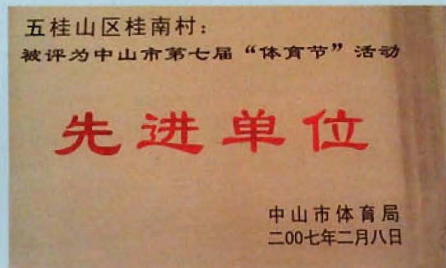 五桂山区桂南村：
被评为中山市第七届“体育节”活动
先进单位
中山市体育局
二00七年二月八日